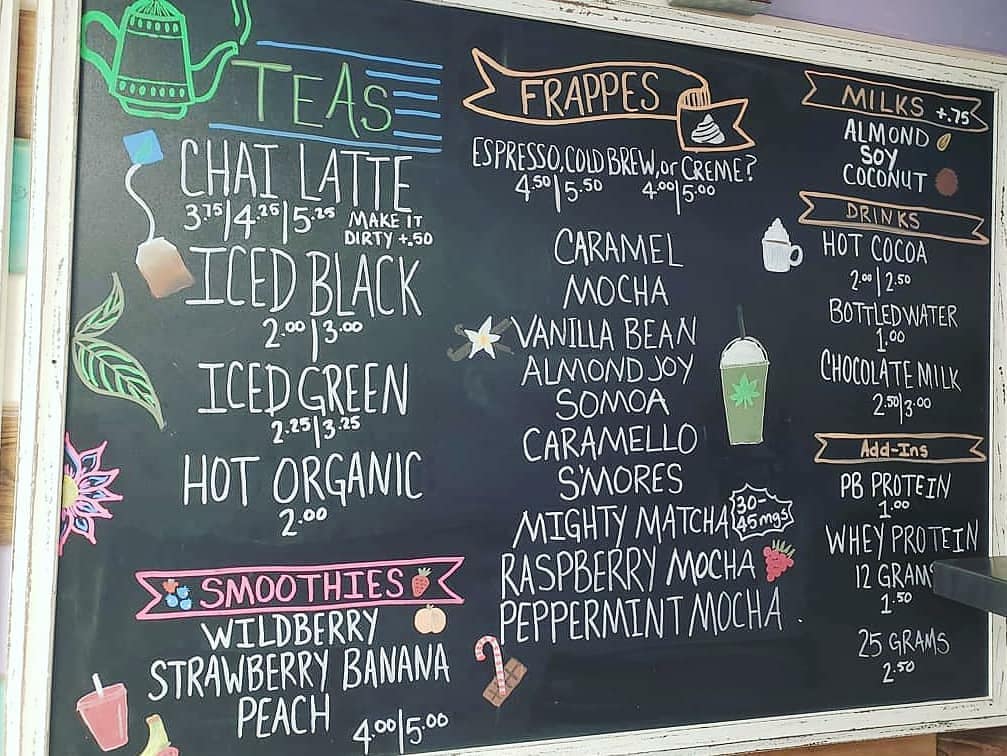 TEAS
CHAI LATTE
3.75|4.25|5.25 MAKE IT
DIRTY +.50
ICED BLACK
2.00|3.00
ICED GREEN
2.25|3.25
HOT ORGANIC
2.00
SMOOTHIES
WILDBERRY
STRAWBERRY BANANA
PEACH 4.00|5.00
FRAPPES
ESPRESSO, COLD BREW, or CREME?
4.50|5.50 4.00|5.00
CARAMEL
MOCHA
VANILLA BEAN
ALMOND JOY
SOMOA
CARAMELLO
S'MORES
MIGHTY MATCHA 30-
45mgs
RASPBERRY MOCHA
PEPPERMINT MOCHA
MILKS +.75
ALMOND
SOY
COCONUT
DRINKS
HOT COCOA
2.00|2.50
BOTTLED WATER
1.00
CHOCOLATE MILK
2.50|3.00
Add-Ins
PB PROTEIN
1.00
WHEY PROTEIN
12 GRAMS
1.50
25 GRAMS
2.50